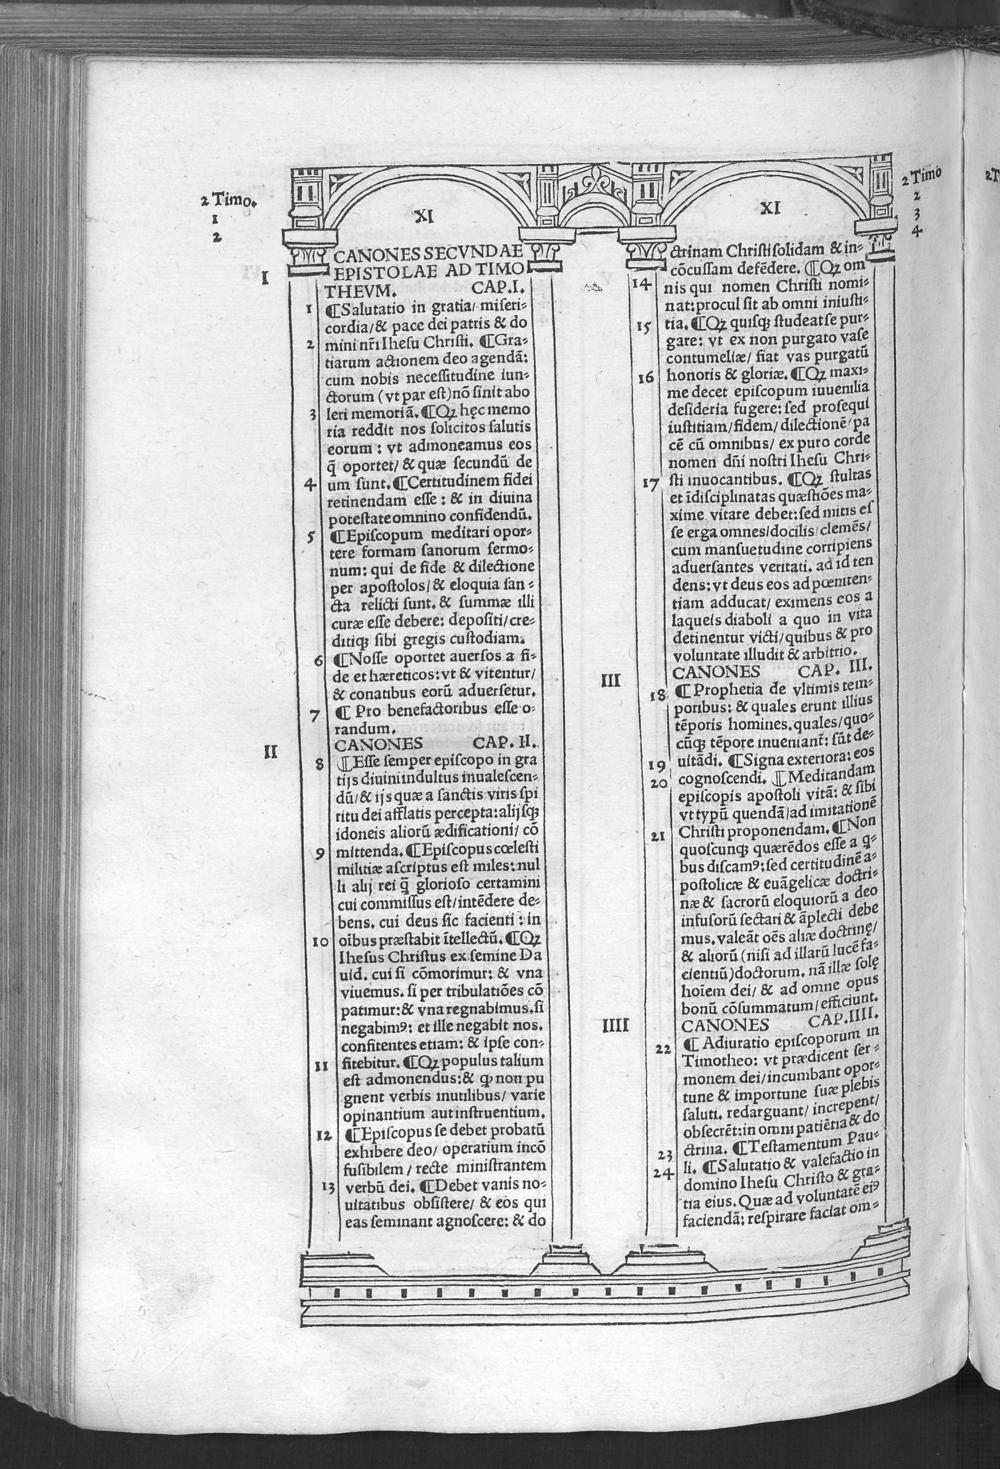 2 Timo.
1
2
XI
I
CANONES SECVNDAE
EPISTOLAE AD TIMO
THEVM. CAP.I.
1 ¶Salutatio in gratia/ miseri⸗
cordia/& pace dei patris & do
2 mini nr̃i Ihesu Christi. ¶Gra⸗
tiarum actionem deo agendã:
cum nobis necessitudine iun⸗
ctorum (vt par est)nõ sinit abo
3 leri memoriã. ¶Qꝫ hęc memo
ria reddit nos solicitos salutis
eorum : vt admoneamus eos
q̃ oportet/ & quæ secundũ de
4 um sunt. ¶Certitudinem fidei
retinendam esse : & in diuina
potestate omnino confidendũ.
5 ¶Episcopum meditari opor⸗
tere formam sanorum sermo⸗
num: qui de fide & dilectione
per apostolos/ & eloquia san⸗
cta relicti sunt. & summæ illi
curæ esse debere: depositi/cre⸗
ditiqꝫ sibi gregis custodiam.
6 ¶Nosse oportet auersos a fi⸗
de et hæreticos: vt & vitentur/
& conatibus eorũ aduersetur.
7 ¶ Pro benefactoribus esse o⸗
randum.
II
CANONES CAP. II.
8 ¶Esse semper episcopo in gra
tijs diuini indultus inualescen⸗
dũ/& ijs quæ a sanctis viris spi
ritu dei afflatis percepta:alijsqꝫ
idoneis aliorũ ædificationi/ cõ
9 mittenda. ¶Episcopus cœlesti
militiæ ascriptus est miles: nul
li alij rei q̃ glorioso certamini
cui commissus est/intẽdere de⸗
bens. cui deus sic facienti : in
10 oĩbus præstabit ĩtellectũ. ¶Qꝫ
Ihesus Christus ex semine Da
uid. cui si cõmorimur: & vna
viuemus. si per tribulatiões cõ
patimur:& vna regnabimus.si
negabimꝰ: et ille negabit nos.
confitentes etiam: & ipse con⸗
11 fitebitur. ¶Qꝫ populus talium
est admonendus:& ꝙ non pu
gnent verbis inutilibus/ varie
opinantium aut instruentium.
12 ¶Episcopus se debet probatũ
exhibere deo/ operatium incõ
fusibilem / recte ministrantem
13 verbũ dei. ¶Debet vanis no⸗
uitatibus obsistere/ & eos qui
eas seminant agnoscere: & do
2 Timo
2
3
4
XI
ctrinam Christi solidam & in⸗
cõcussam defẽdere. ¶Qꝫ om
14 nis qui nomen Christi nomi⸗
nat: procul sit ab omni iniusti⸗
15 tia. ¶Qꝫ quisqꝫ studeat se pur⸗
gare: vt ex non purgato vase
contumeliæ/ fiat vas purgatũ
16 honoris & gloriæ. ¶Qꝫ maxi⸗
me decet episcopum iuuenilia
desideria fugere: sed prosequi
iustitiam/fidem/ dilectionẽ/ pa
cẽ cũ omnibus/ ex puro corde
nomen dñi nostri Ihesu Chri⸗
17 sti inuocantibus. ¶Qꝫ stultas
et ĩdisciplinatas quæstiões ma⸗
xime vitare debet: sed mitis es
se erga omnes/docilis/clemẽs/
cum mansuetudine corripiens
aduersantes veritati. ad id ten
dens: vt deus eos ad pœniten⸗
tiam adducat/ eximens eos a
laqueis diaboli a quo in vita
detinentur victi/quibus & pro
voluntate illudit & arbitrio.
III
CANONES CAP. III.
18 ¶Prophetia de vltimis tem⸗
poribus: & quales erunt illius
tẽporis homines.quales/quo⸗
cũqꝫ tẽpore inueniant̃: sũt de⸗
19 uitãdi. ¶Signa exteriora: eos
20 cognoscendi. ¶Meditandam
episcopis apostoli vitã: & sibi
vt typũ quendã/ad imitationẽ
21 Christi proponendam. ¶Non
quoscunqꝫ quærẽdos esse a q⸗
bus discamꝰ: sed certitudinẽ a⸗
postolicæ & euãgelicæ doctri⸗
næ & sacrorũ eloquiorũ a deo
infusorũ sectari & ãplecti debe
mus. valeãt oẽs aliæ doctrinę/
& aliorũ (nisi ad illarũ lucẽ fa⸗
cientiũ)doctorum. nã illæ solę
hoĩem dei/ & ad omne opus
bonũ cõsummatum/efficiunt.
IIII
CANONES CAP.IIII.
22 ¶ Adiuratio episcoporum in
Timotheo: vt prædicent ser⸗
monem dei/incumbant opor⸗
tune & importune suæ plebis
saluti. redarguant/ increpent/
obsecrẽt:in omni patiẽtia & do
23 ctrina. ¶Testamentum Pau⸗
24 li. ¶Salutatio & valefactio in
domino Ihesu Christo & gra⸗
tia eius. Quæ ad voluntatẽ eiꝰ
faciendã: respirare faciat om⸗
2T